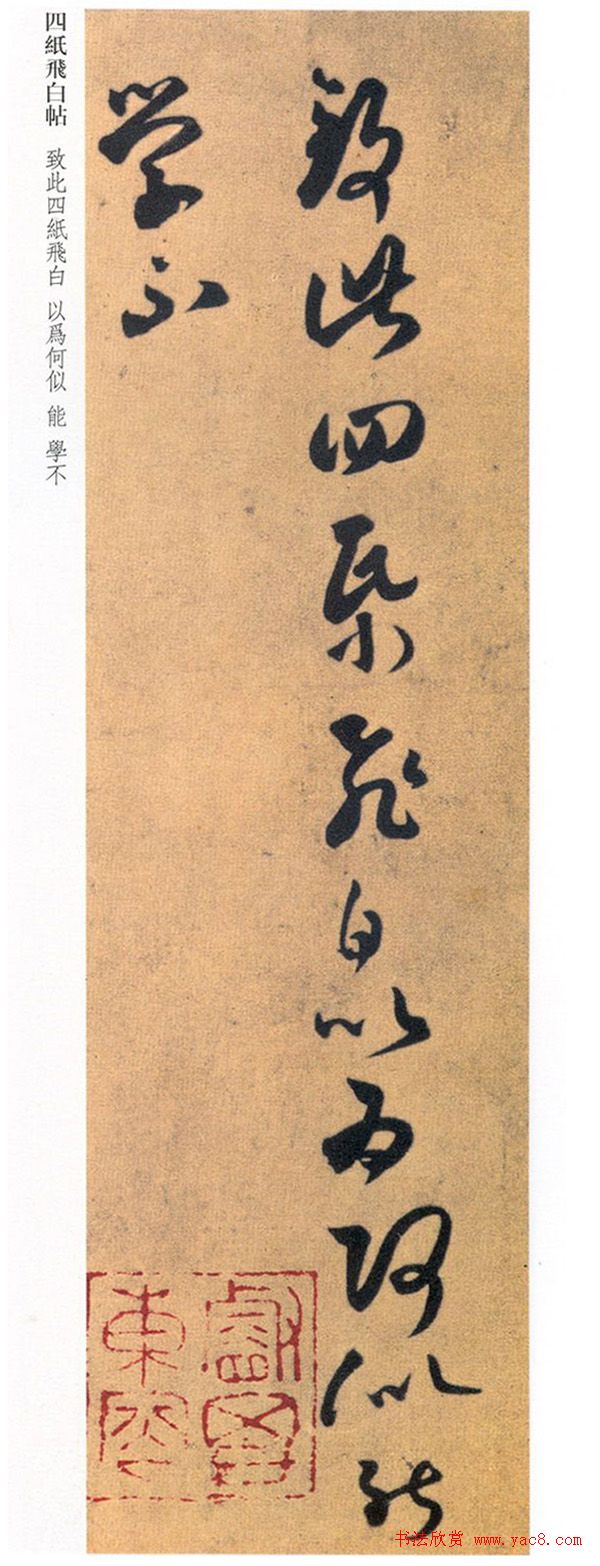 致此四紙飛白以爲何似能
學不
四紙飛白帖 致此四紙飛白 以爲何似 能 學不
书法欣赏 www.yac8.com